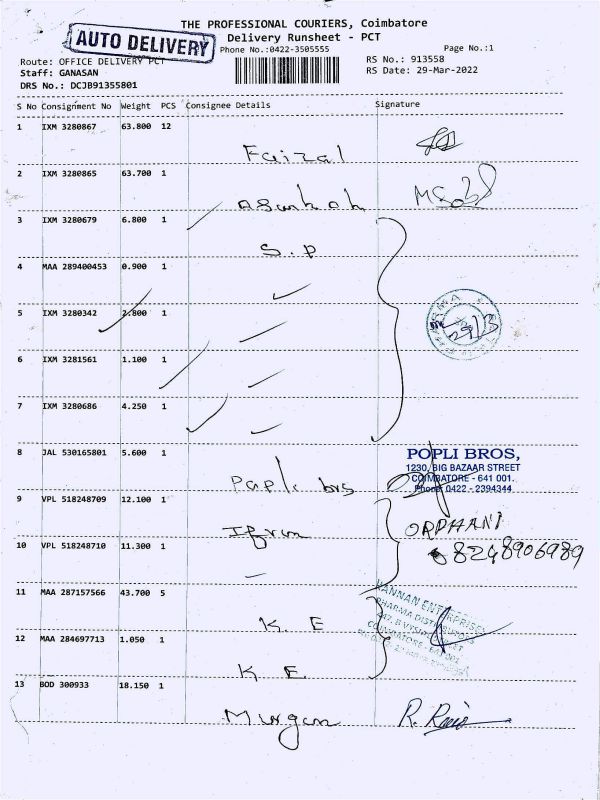 THE PROFESSIONAL COURIERS, Coimbatore
AUTO DELIVERY
Delivery Runsheet - PCT
Phone No.:0422-3505555
Page No.:1
Route: OFFICE DELIVERY PCT
RS No.: 913558
Staff: GANASAN
RS Date: 29-Mar-2022
DRS No.: DCJB91355801
S No Consignment No Weight PCS Consignee Details Signature
1 IXM 3280867 63.800 12
Faizal
2 IXM 3280865 63.700 1
3 IXM 3280679 6.800 1
S.P
4 MAA 289400453 0.900 1
5 IXM 3280342 2.800 1
6 IXM 3281561 1.100 1
7 IXM 3280686 4.250 1
8 JAL 530165801 5.600 1
POPLI BROS,
1230, BIG BAZAAR STREET
COIMBATORE - 641 001.
Phone: 0422 - 2394344
Papli brs
9 VPL 518248709 12.100 1
ORPHANI
8248906989
10 VPL 518248710 11.300 1
11 MAA 287157566 43.700 5
KANNAN ENTERPRISES
PHARMA DISTRIBUTORS
COIMBATORE - 641 001
K. E
12 MAA 284697713 1.050 1
K E
13 BOD 300933 18.150 1
Murgan